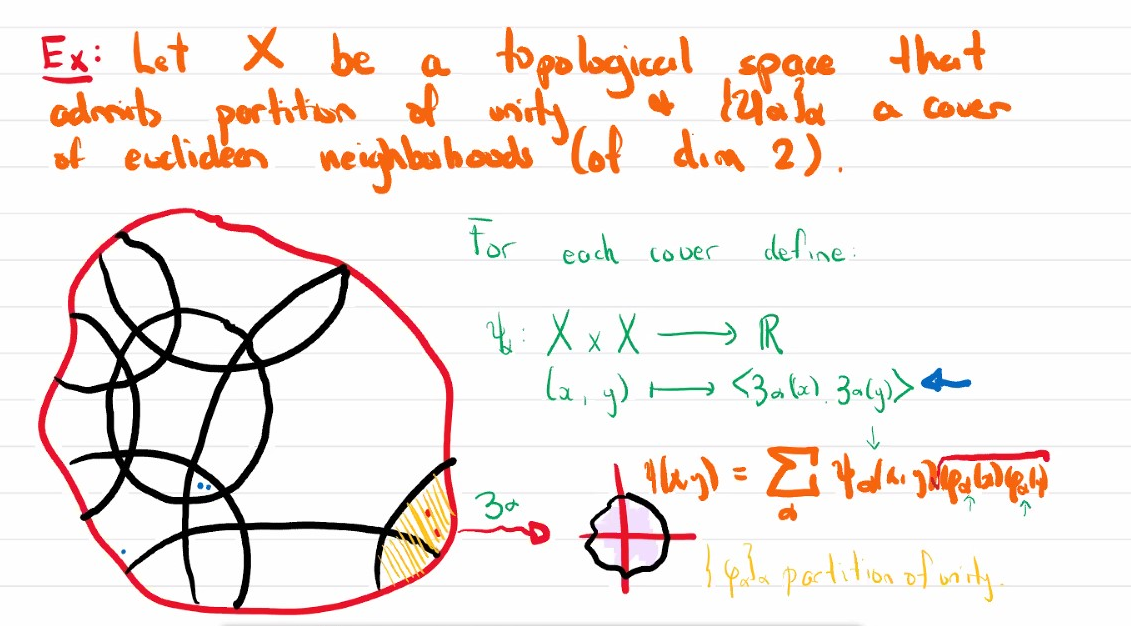 Ex: Let X be a topological space that
admits partition of unity & {𝒰α}α a cover
of euclidean neighborhoods (of dim 2).
For each cover define:
ψα: X × X ⟶ ℝ
(x, y) ⟼ <ʒα(x), ʒα(y)>
ψ(x,y) = Σα ψα(x,y)√(φα(x)φα(y))
ʒα
{φα}α partition of unity.